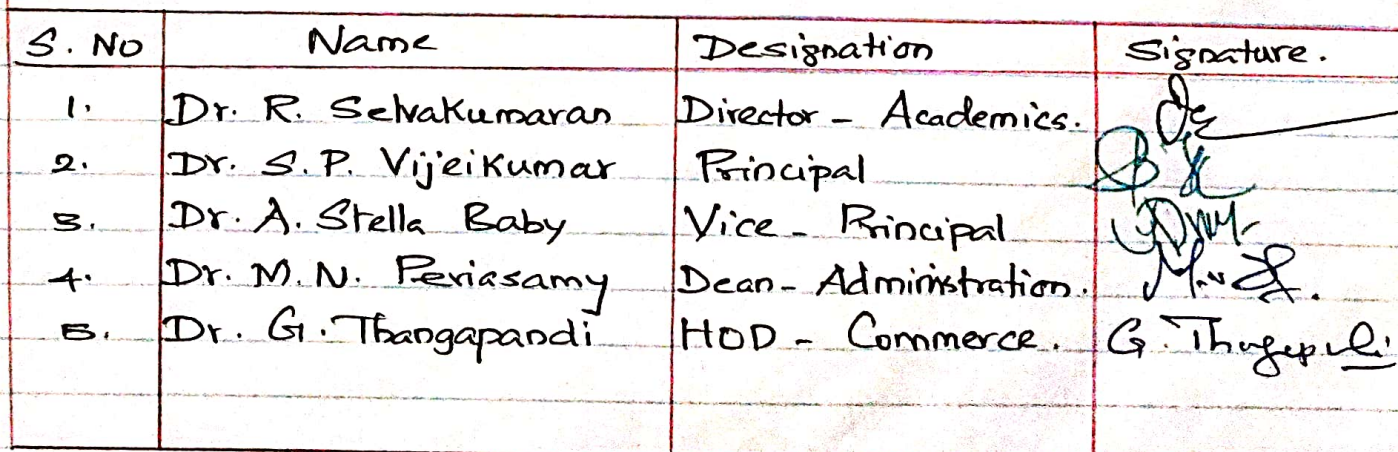 S. No Name Designation Signature.
1. Dr. R. Selvakumaran Director - Academics.
2. Dr. S.P. Vijeikumar Principal
3. Dr. A. Stella Baby Vice - Principal
4. Dr. M.N. Periasamy Dean - Administration.
5. Dr. G. Thangapandi HOD - Commerce.